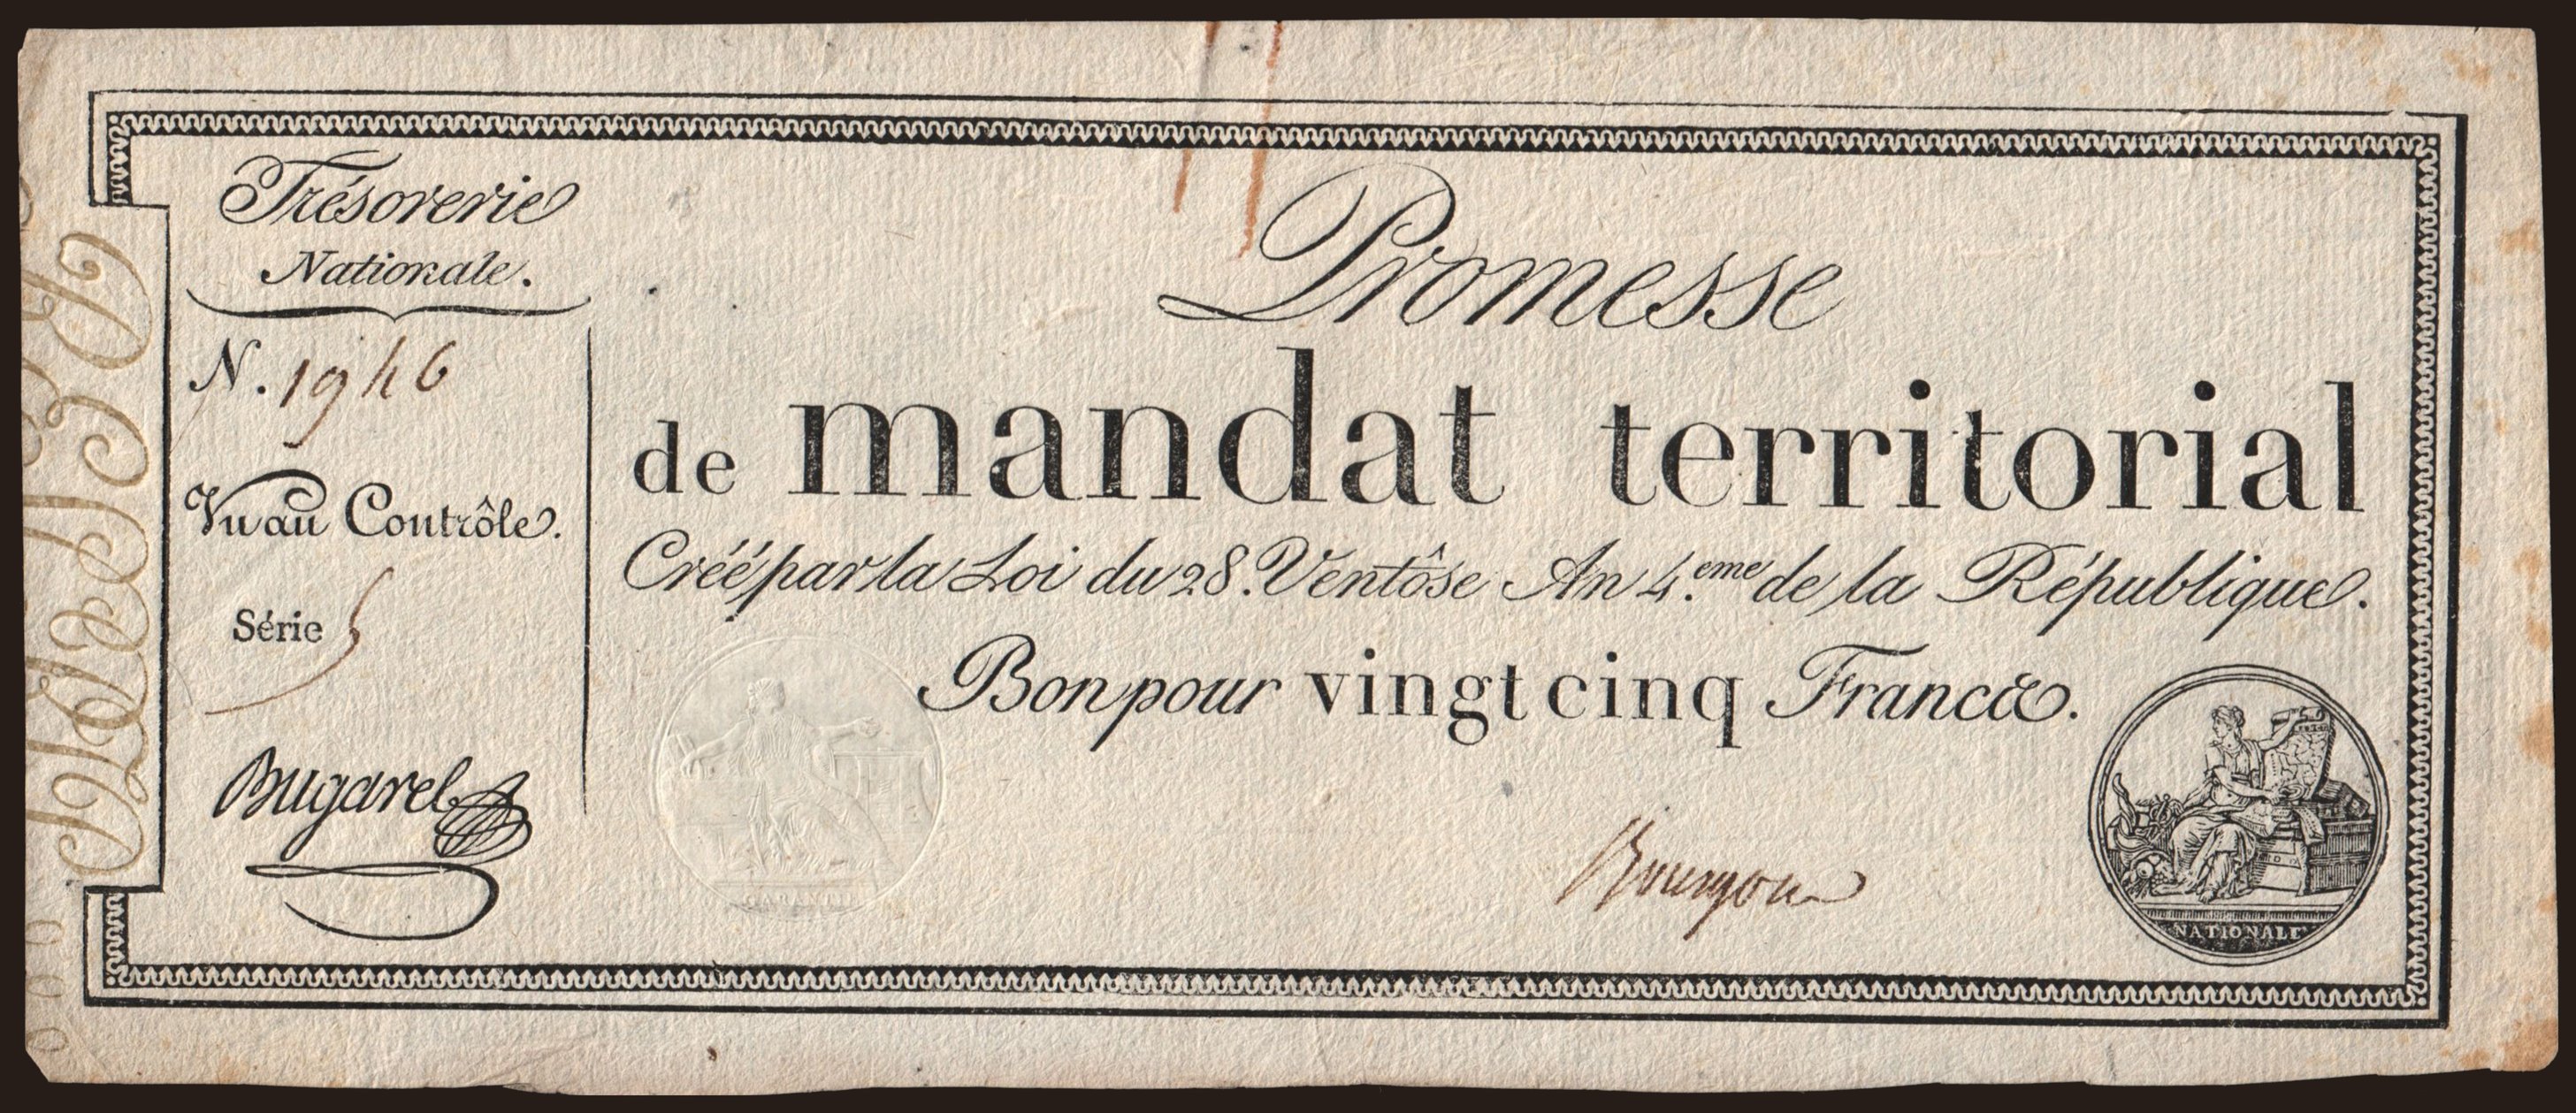 Trésorerie
Nationale.
N. 1946
Vu au Contrôle.
Série 5
Bugarel
Promesse
de mandat territorial
Créé par la Loi du 28. Ventôse An 4.eme de la République.
Bon pour vingt cinq Francs.
NATIONALE